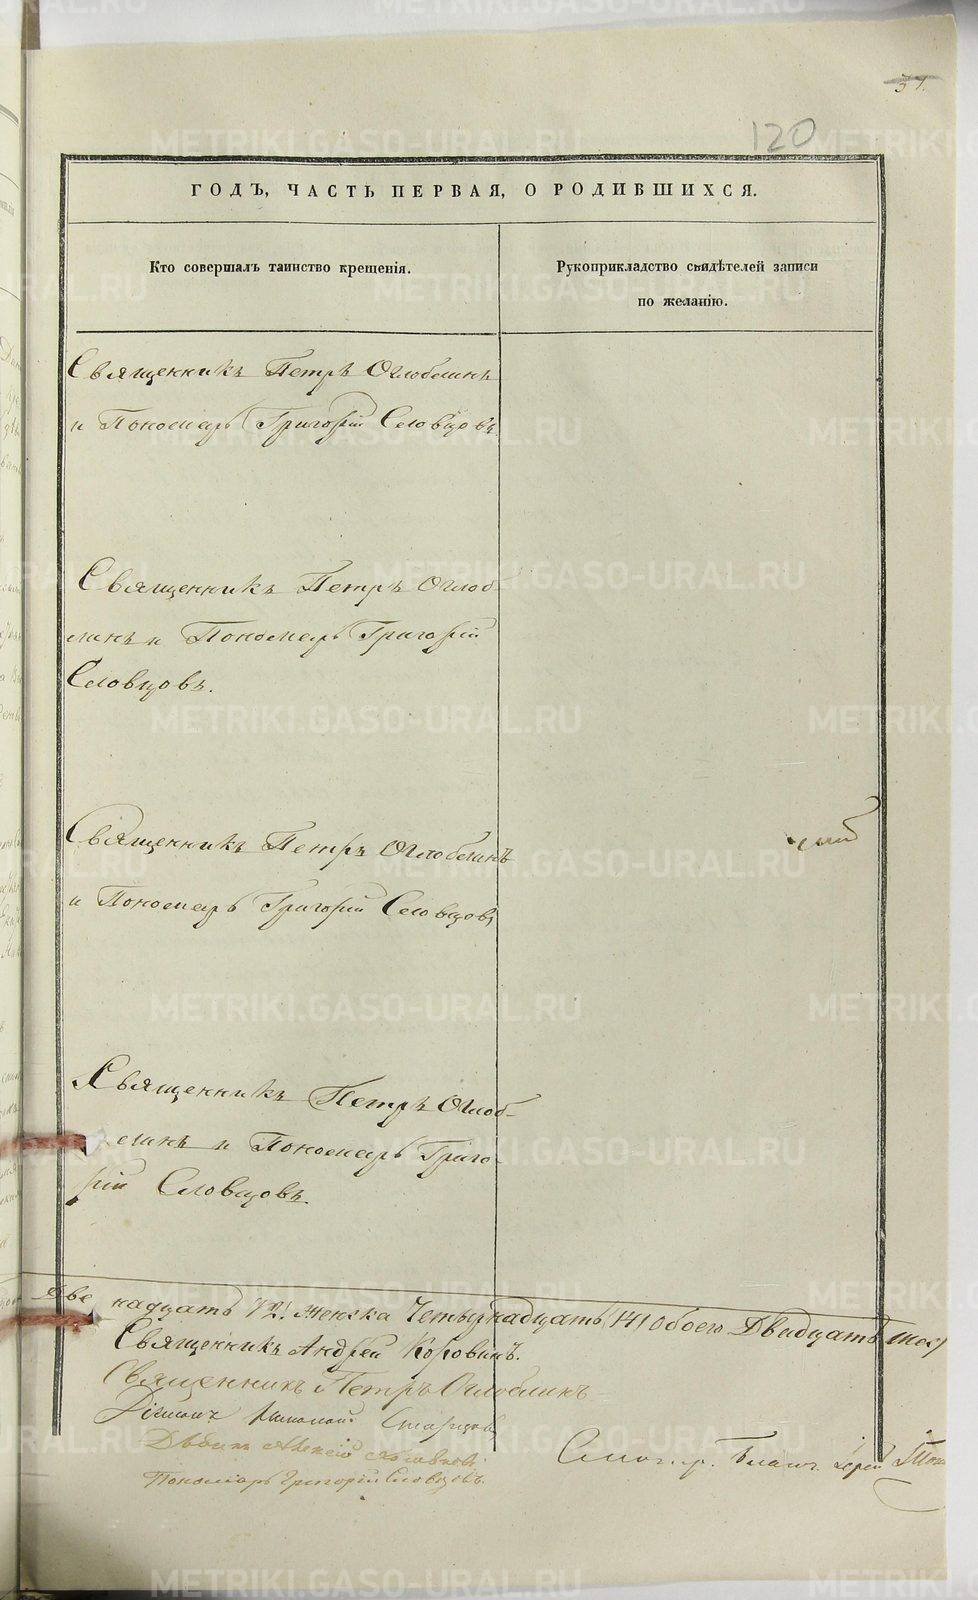 37.
120
ГОДЪ, ЧАСТЬ ПЕРВАЯ, О РОДИВШИХСЯ.
Кто совершалъ таинство крещенія.
Рукоприкладство свидѣтелей записи
по желанію.
Священникъ Петръ Оглоблинъ
и Пономарь Григорій Словцовъ
Священникъ Петръ Оглоб-
линъ и Пономарь Григорій
Словцовъ.
Священникъ Петръ Оглоблинъ
и Пономарь Григорій Словцовъ
Священникъ Петръ Оглоб-
линъ и Пономарь Григо-
рій Словцовъ.
Две надцать /12/ женска Четырнадцать /14/ обоего Двадцать шесть
Священникъ Андрей Коровинъ.
Священникъ Петръ Оглоблинъ
Діаконъ Николай
Дьячекъ Алексій
Пономарь Григорій Словцовъ.
METRIKI.GASO-URAL.RU